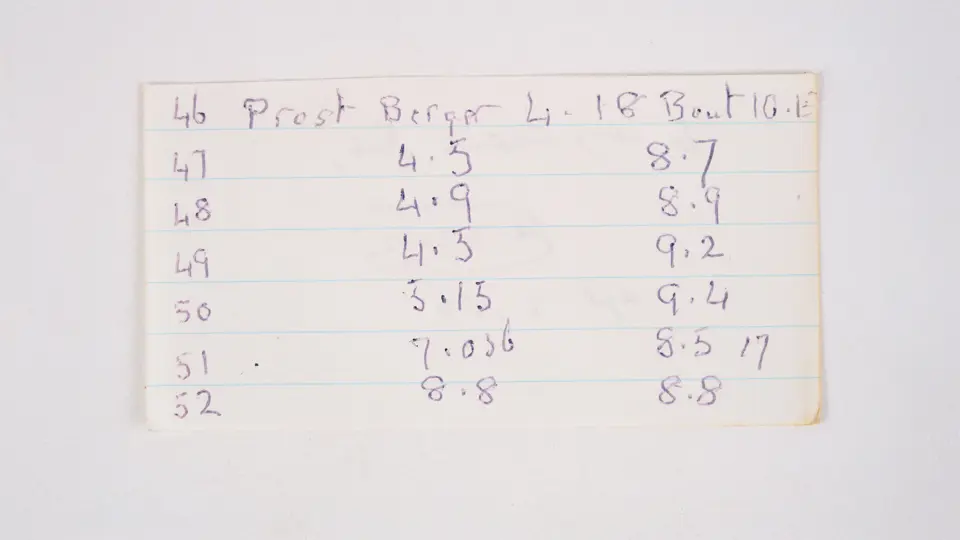 46 Prost Berger 4.18 Bout 10.1
47 4.5 8.7
48 4.9 8.9
49 4.5 9.2
50 5.15 9.4
51 . 7.036 8.5 17
52 8.8 8.8